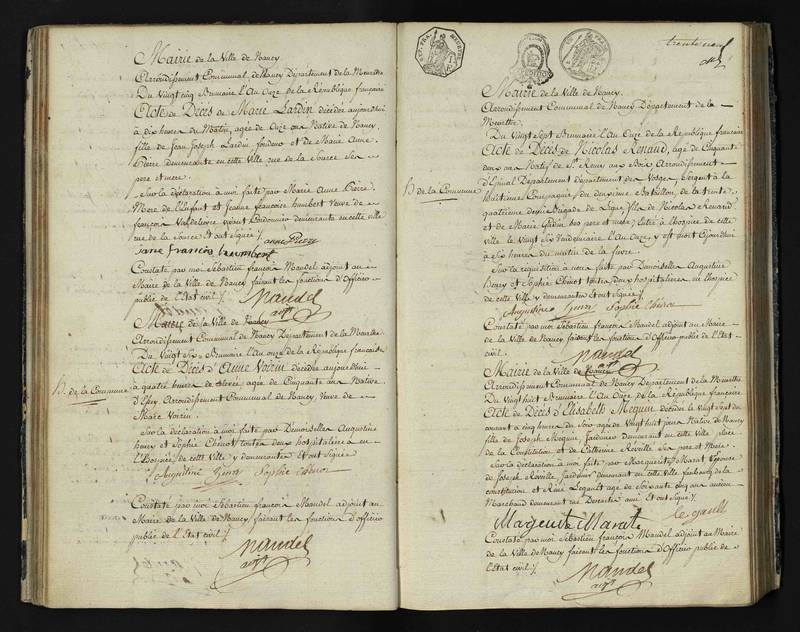 Mairie de la Ville de Nancy
Arrondissement Communal de Nancy Département de la Meurthe
Du Vingt cinq Brumaire l'An Onze de la République francaise
Acte de Décès de Marie Lardin décédée aujourdhui
à dix heures du Matin, agée de Onze ans Native de Nancy
fille de Jean Joseph Lardin fondeur et de Marie Anne
Pierre demeurants en cette Ville rue de la Source Ses
pere et mere.
Sur la déclaration à moi faite par Marie Anne Pierre
Mere de l'Enfant et Jeanne francoise humbert Veuve de
françois demeurants en cette ville
rue de la Source. Et ont Signés
anne Pierre
jane francois heumbert
Constaté par moi Sébastien françois Mandel adjoint au
Maire de la Ville de Nancy, faisant les fonctions d'Officier
public de l'Etat civil
Mandel
adjt
Mairie de la Ville de Nancy
Arrondissement Communal de Nancy Département de la Meurthe
Du Vingt Six Brumaire l'An onze de la République francaise
Acte de Décès d'Anne Voirin décédée aujourdhui
H. de la Commune
à quatre heures de agée de Cinquante ans Native
Arrondissement Communal de Nancy, Veuve de
Marc Voirin.
Sur la déclaration à moi faite par Demoiselles Augustine
henry et Sophie Chénot toutes deux hospitalieres en
l'Hospice de cette Ville y demeurantes Et ont Signés
Augustine Sophie Chénot
Constaté par moi Sébastien françois Mandel adjoint au
Maire de la Ville de Nancy, faisant les fonctions d'Officier
public de l'Etat civil
Mandel
adjt
trente neuf
Mairie de la Ville de Nancy.
Arrondissement Communal de Nancy Département de la
Meurthe.
Du Vingt Sept Brumaire l'An Onze de la République francaise
Acte de Décès de Nicolas Renaud, agé de Cinquante
deux ans Natif de St. Remy aux Bois Arrondissement
d'Epinal Département des Vosges Sergent à la
H de la Commune
huitieme Compagnie du deuxieme Bataillon de la trente
quatrieme demie Brigade de Ligne, fils de Nicolas Renaud
et de Marie ses pere et mere; Entré à l'hospice de cette
ville le Vingt Six Vendemiaire l'An Onze, y est mort Aujourdhui
à Six heures du matin de la fievre.
Sur la requisition à moi faite par Demoiselles Augustine
henry et Sophie Chénot toutes deux hospitalieres en l'hospice
de cette ville y demeurantes Et ont Signés
Augustine Sophie Chénot
Constaté par moi Sébastien françois Mandel adjoint au Maire
de la Ville de Nancy faisant les fonctions d'Officier public de l'Etat
civil.
Mandel
adjt
Mairie de la Ville de Nancy
Arrondissement Communal de Nancy Département de la Meurthe
Du Vingt huit Brumaire l'An Onze de la République francaise
Acte de Décès d'Elisabeth Mequin décédée le Vingt Sept du
courant à cinq heures du Soir agée de Vingt huit jours Native de Nancy
fille de Joseph Mequin Jardinier demeurant en cette Ville place
de la Constitution et de Catherine Réville Ses pere et Mere.
Sur la déclaration à moi faite par Marguerite Marat Epouse
de Joseph Réville Jardinier demeurant en cette ville faubourg de la
constitution et René Legault agé de Soixante cinq ans ancien
Marchand demeurant au ami Et ont Signés
Margerite Marate
legault
Constaté par moi Sébastien françois Mandel adjoint au Maire
de la Ville de Nancy faisant les fonctions d'Officier public de
l'Etat civil
Mandel
adjt